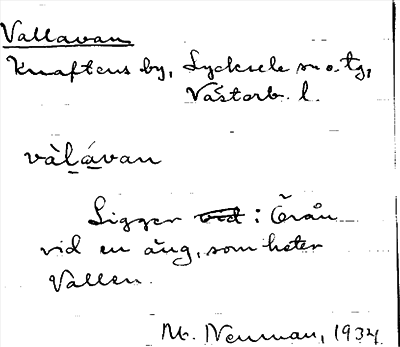 Vallavan
Knaftens by, Lycksele sn o. tg,
Västerb. l.
vàlávan
Ligger vid: Örån
vid en äng, som heter
Vallen.
M. Neuman, 1934